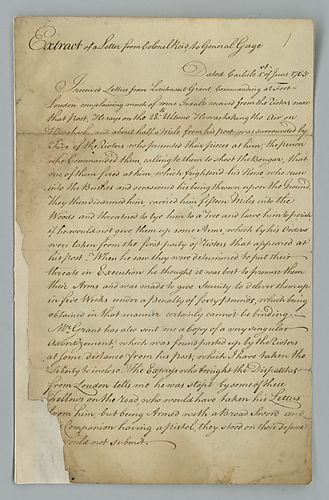 Extract of a Letter from Colonel Reid to General Gage
Dated Carlisle 1st of June 1765
I received Letters from Lieutenant Grant Commanding at Fort
Loudon complaining much of some Insults received from the Rioters near
that Post. He says on the 28th Ultimo He was taking the Air on
Horseback, and about half a Mile from his post, was surrounded by
Five of the Rioters who presented their pieces at him; the person
who Commanded them calling to them to Shoot the Bougar, that
one of them fired at him, which frightend his Horse, who run
into the Bushes and occasioned his being thrown upon the Ground.
They then disarmed him, carried him fifteen Miles into the
Woods and threatned to tye him to a Tree and leave him to perish
if he would not give them up some Arms, which by his Orders
were taken from the first party of Rioters that appeared at
his post. When he saw they were determined to put their
threats in Execution he thought it was best to promise them
their Arms and was made to give Security to deliver them up
in five Weeks under a penalty of forty pounds, which being
obtained in that manner certainly cannot be binding.
Mr. Grant has also sent me a Copy of a very singular
Advertizement which was found pasted up by the Rioters
at some distance from his post, which I have taken the
Liberty to inclose. The Express who brought the Dispatches
from Loudon tells me he was Stopt by some of these
fellows on the road, who would have taken his Letters
from him, but being Armed with a Broad Sword and
Companion having a pistol, they stood on their defence
would not submit.